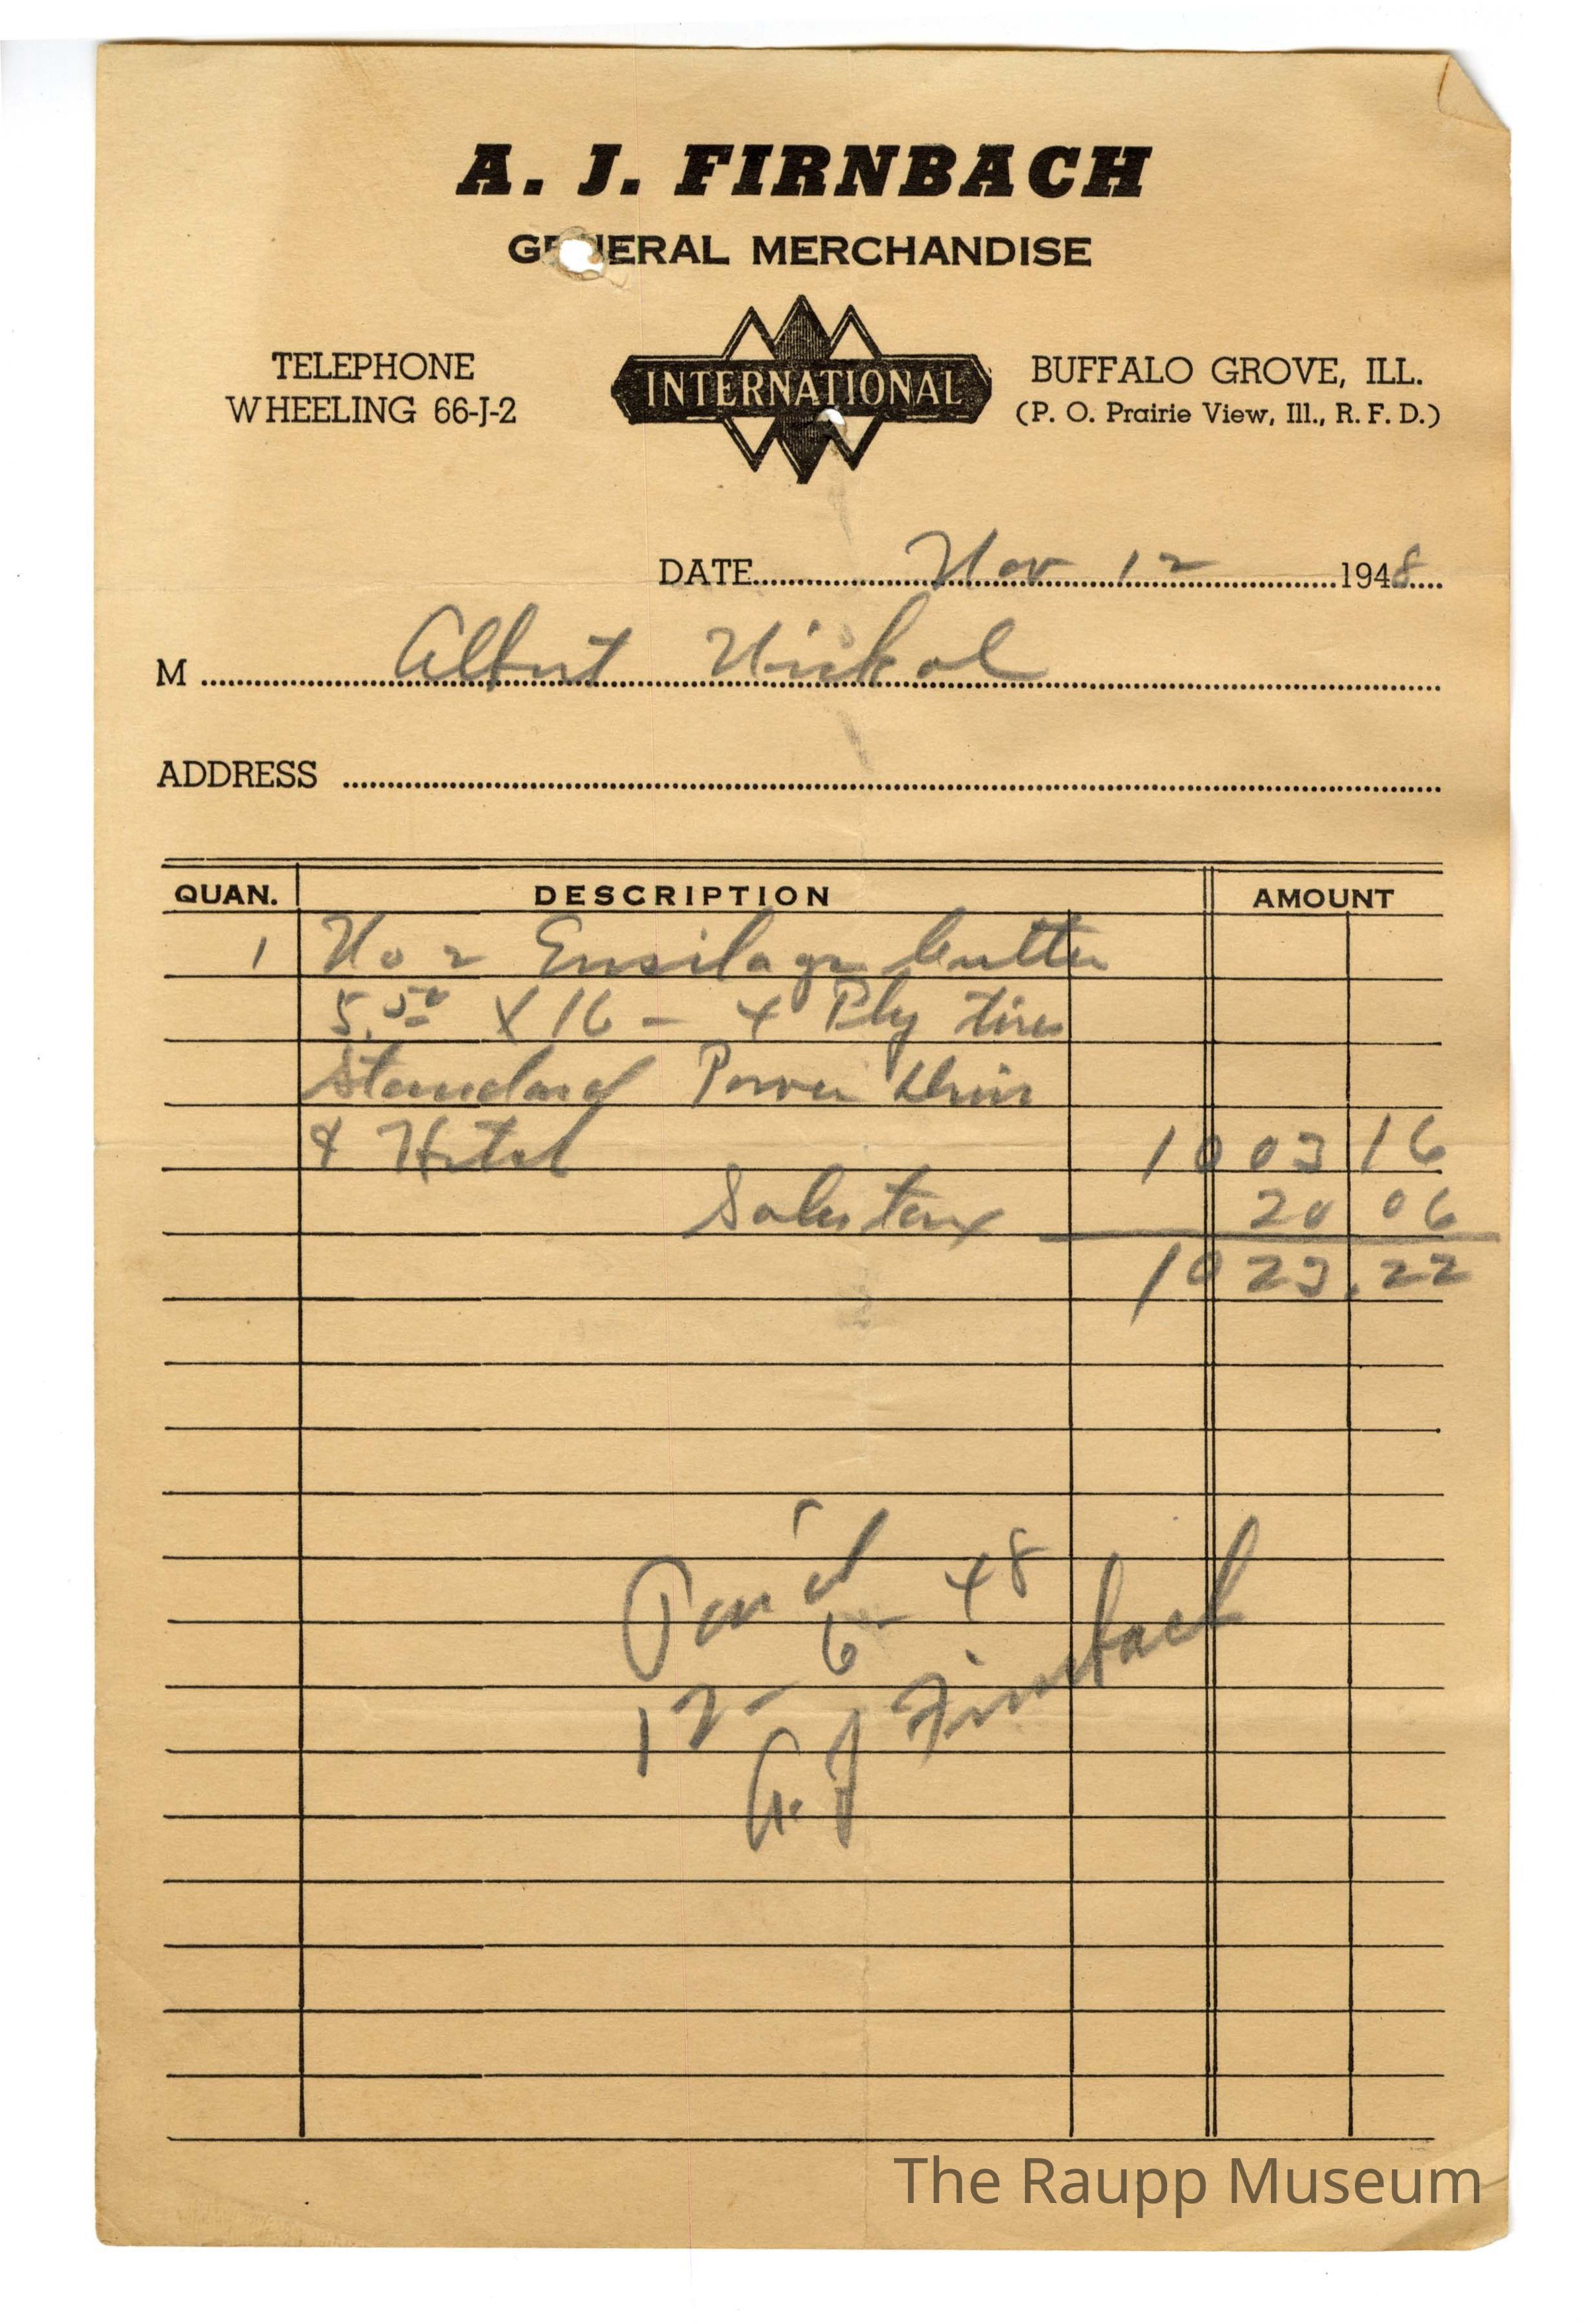 A. J. FIRNBACH
GENERAL MERCHANDISE
TELEPHONE
WHEELING 66-J-2
INTERNATIONAL
BUFFALO GROVE, ILL.
(P. O. Prairie View, Ill., R. F. D.)
DATE Nov 12 1948
M Albert Nickol
ADDRESS
QUAN. DESCRIPTION AMOUNT
1 No 2 Ensilage Cutter
5.50 X 16 - 4 Ply tires
Standard Power Driv
& Hitch 1003 16
Sales tax 20 06
1023.22
Paid
12-6-48
A. J Firnbach
The Raupp Museum